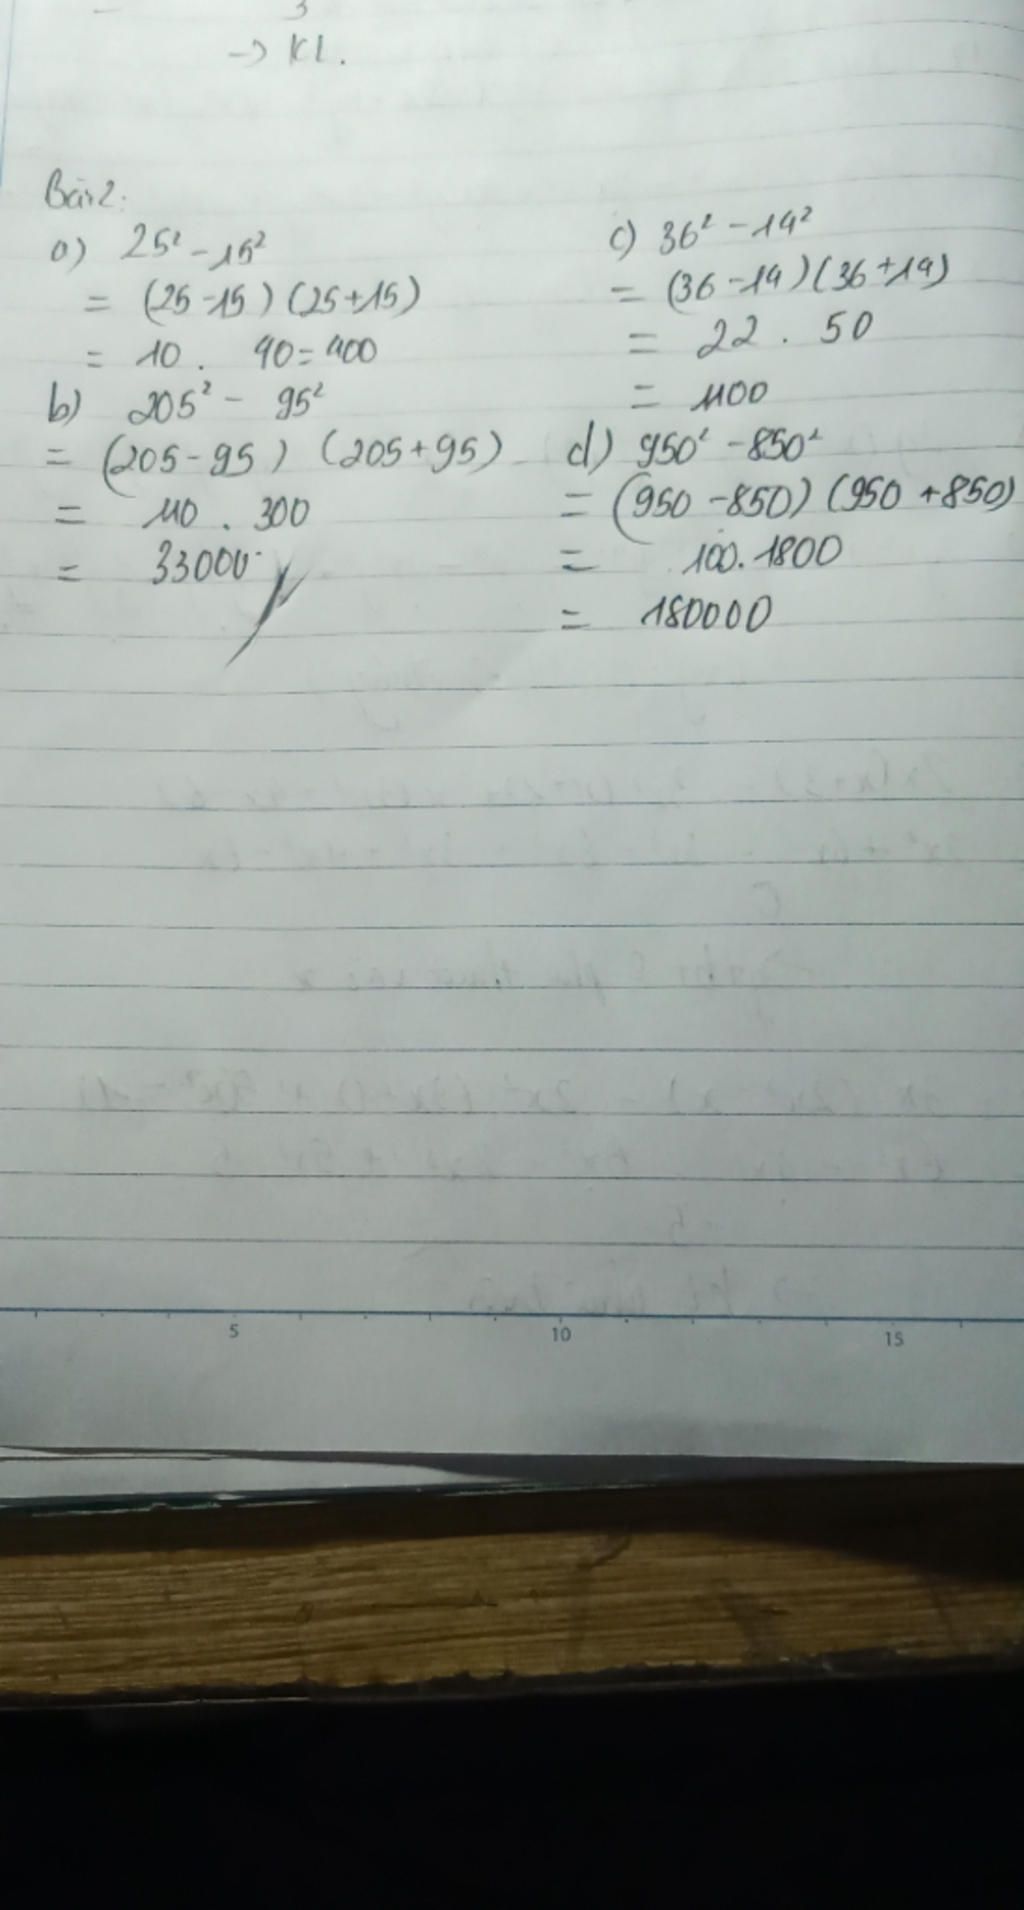 3
→ KL.
Bài 2:
a) 25² - 15²
= (25 - 15) (25 + 15)
= 10 . 40 = 400
b) 205² - 95²
= (205 - 95) (205 + 95)
= 110 . 300
= 33000
c) 36² - 14²
= (36 - 14) (36 + 14)
= 22 . 50
= 1100
d) 950² - 850²
= (950 - 850) (950 + 850)
= 100 . 1800
= 180000
5 10 15